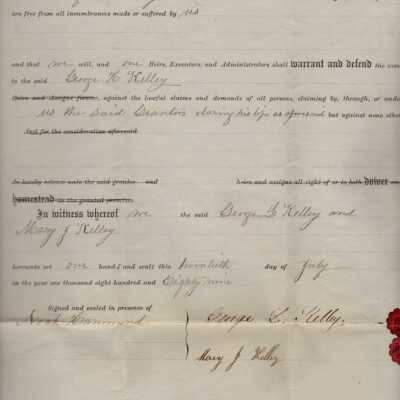 are free from all incumbrances made or suffered by us
and that we will, and our Heirs, Executors, and Administrators shall warrant and defend the same
to the said George H Kelley
Heirs and Assigns forever, against the lawful claims and demands of all persons, claiming by, through, or under
us the said Grantors during his life as aforesaid but against none other
And for the consideration aforesaid
do hereby release unto the said grantee and heirs and assigns all right of or to both dower and
homestead in the granted premises
In witness whereof we the said George L Kelley and
Mary J Kelley
hereunto set our hand s and seal s this twentieth day of July
in the year one thousand eight hundred and Eighty nine
Signed and sealed in presence of
George L. Kelley.
Mary J Kelley